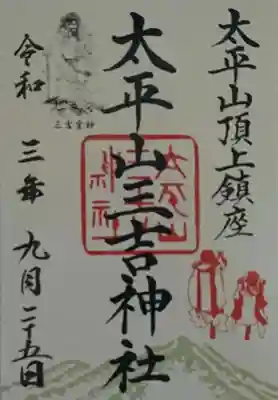 太平山頂上鎮座
太平山三吉神社
三吉霊神
令和三年九月二十五日
太平山三吉神社